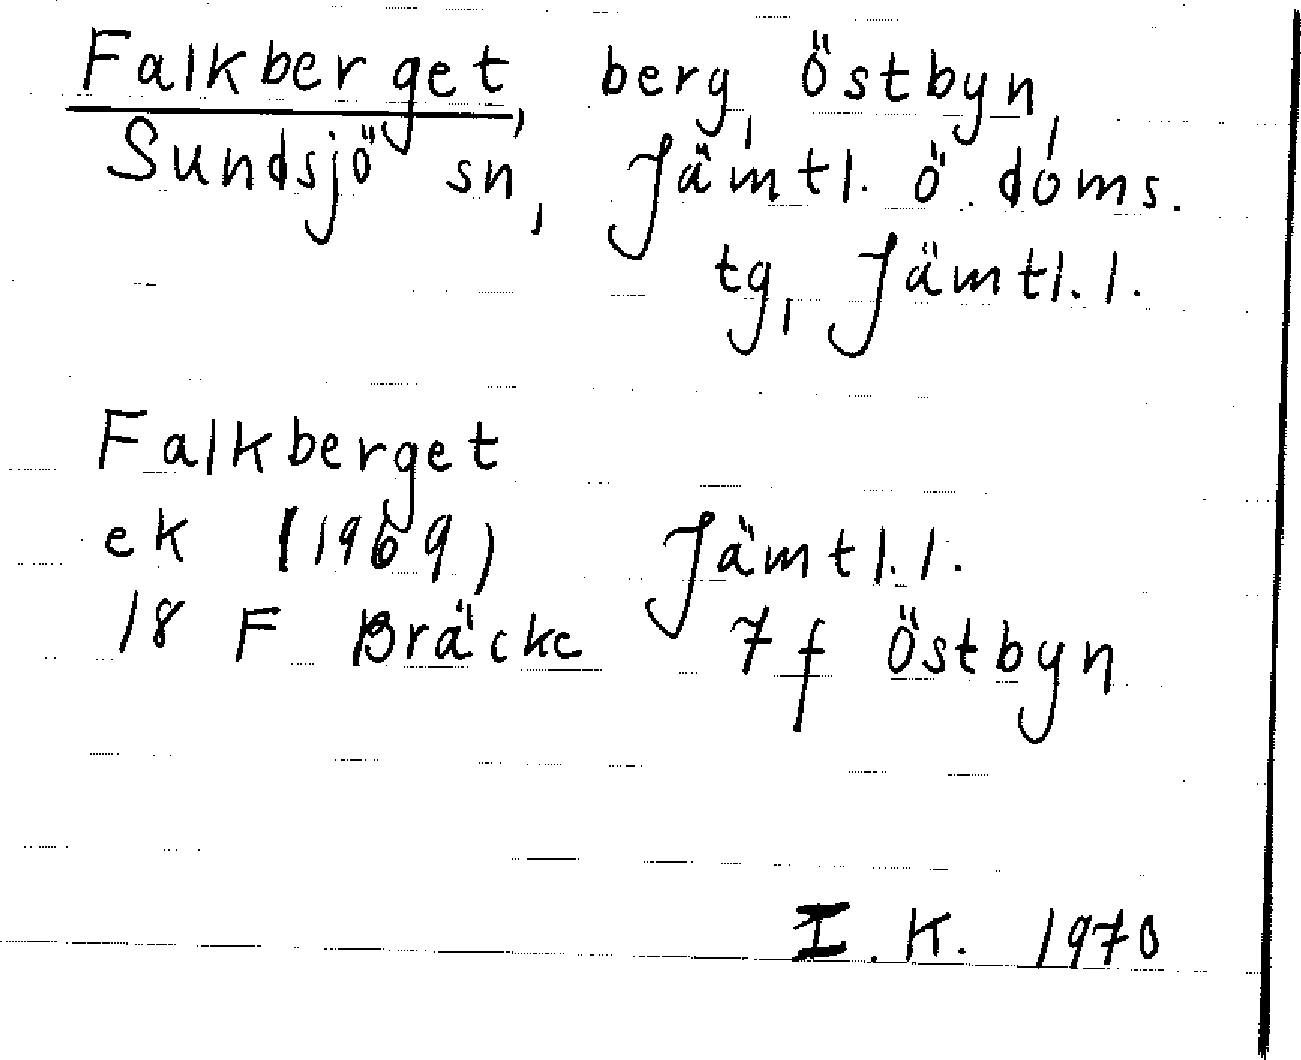 Falkberget, berg, Östbyn,
Sundsjö sn, Jämtl. ö. doms.
tg, Jämtl. l.
Falkberget
ek (1969) Jämtl. l.
18 F Bräcke 7 f Östbyn
I. K. 1970